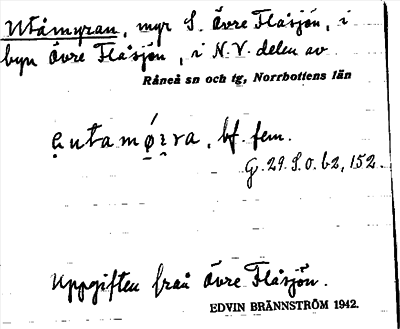 Utåmyran, myr S. Övre Flåsjön, i
byn Övre Flåsjön, i N.V. delen av
Råneå sn och tg, Norrbottens län
bf. fem.
G. 29. S. o. b2, 152.
Uppgiften från Övre Flåsjön.
EDVIN BRÄNNSTRÖM 1942.